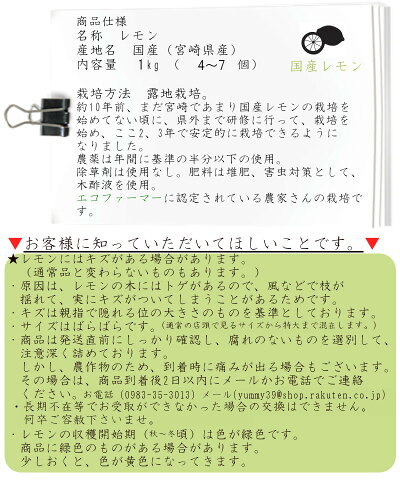 商品仕様
名称　レモン
産地名　国産（宮崎県産）
内容量　1kg（　4〜7　個）
国産レモン
栽培方法　露地栽培。
約10年前、まだ宮崎であまり国産レモンの栽培を
始めてない頃に、県外まで研修に行って、栽培を
始め、ここ2、3年で安定的に栽培できるように
なりました。
農薬は年間に基準の半分以下の使用。
除草剤は使用なし。肥料は堆肥、害虫対策として、
木酢液を使用。
エコファーマーに認定されている農家さんの栽培で
す。
▼お客様に知っていただいてほしいことです。▼
★レモンにはキズがある場合があります。
（通常品と変わらないものもあります。）
・原因は、レモンの木にはトゲがあるので、風などで枝が
揺れて、実にキズがついてしまうことがあるためです。
・キズは親指で隠れる位の大きさのものを基準としております。
・サイズはばらばらです。（通常の店頭で見るサイズから特大まで混在します。）
商品は発送直前にしっかり確認し、腐れのないものを選別して、
注意深く詰めております。
しかし、農作物のため、到着時に痛みが出る場合もございます。
その場合は、商品到着後2日以内にメールかお電話でご連絡
ください。お電話（0983-35-3013）メール(yummy39@shop.rakuten.co.jp)
・長期不在等でお受取ができなかった場合の交換はできません。
何卒ご容赦下さいませ。
・レモンの収穫開始期（秋〜冬頃）は色が緑色です。
商品に緑色のものがある場合があります。
少しおくと、色が黄色になってきます。